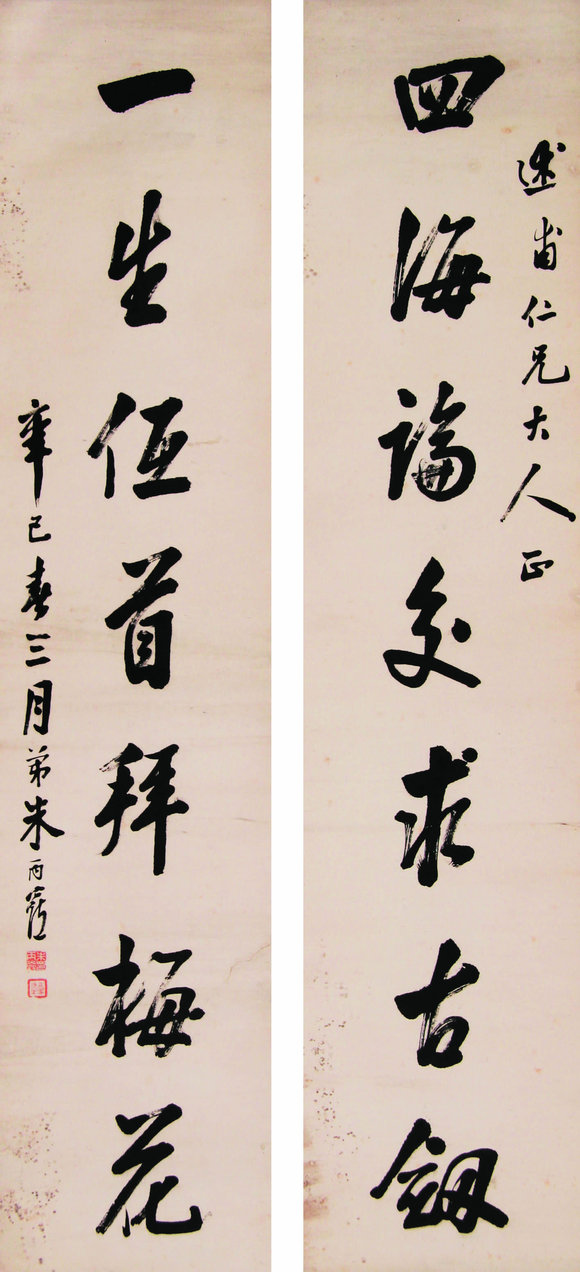 述甫仁兄大人正
四海論交求古劔
一生低首拜梅花
辛巳春三月弟朱丙